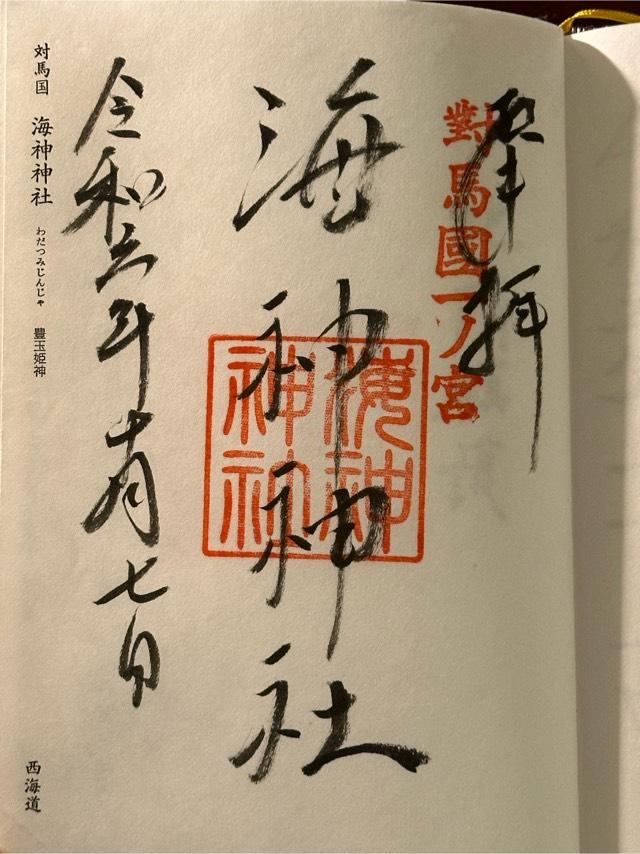 奉拝
對馬國一ノ宮
海神神社
海神
神社
令和六年十月七日
対馬国 海神神社 わだつみじんじゃ 豊玉姫神
西海道